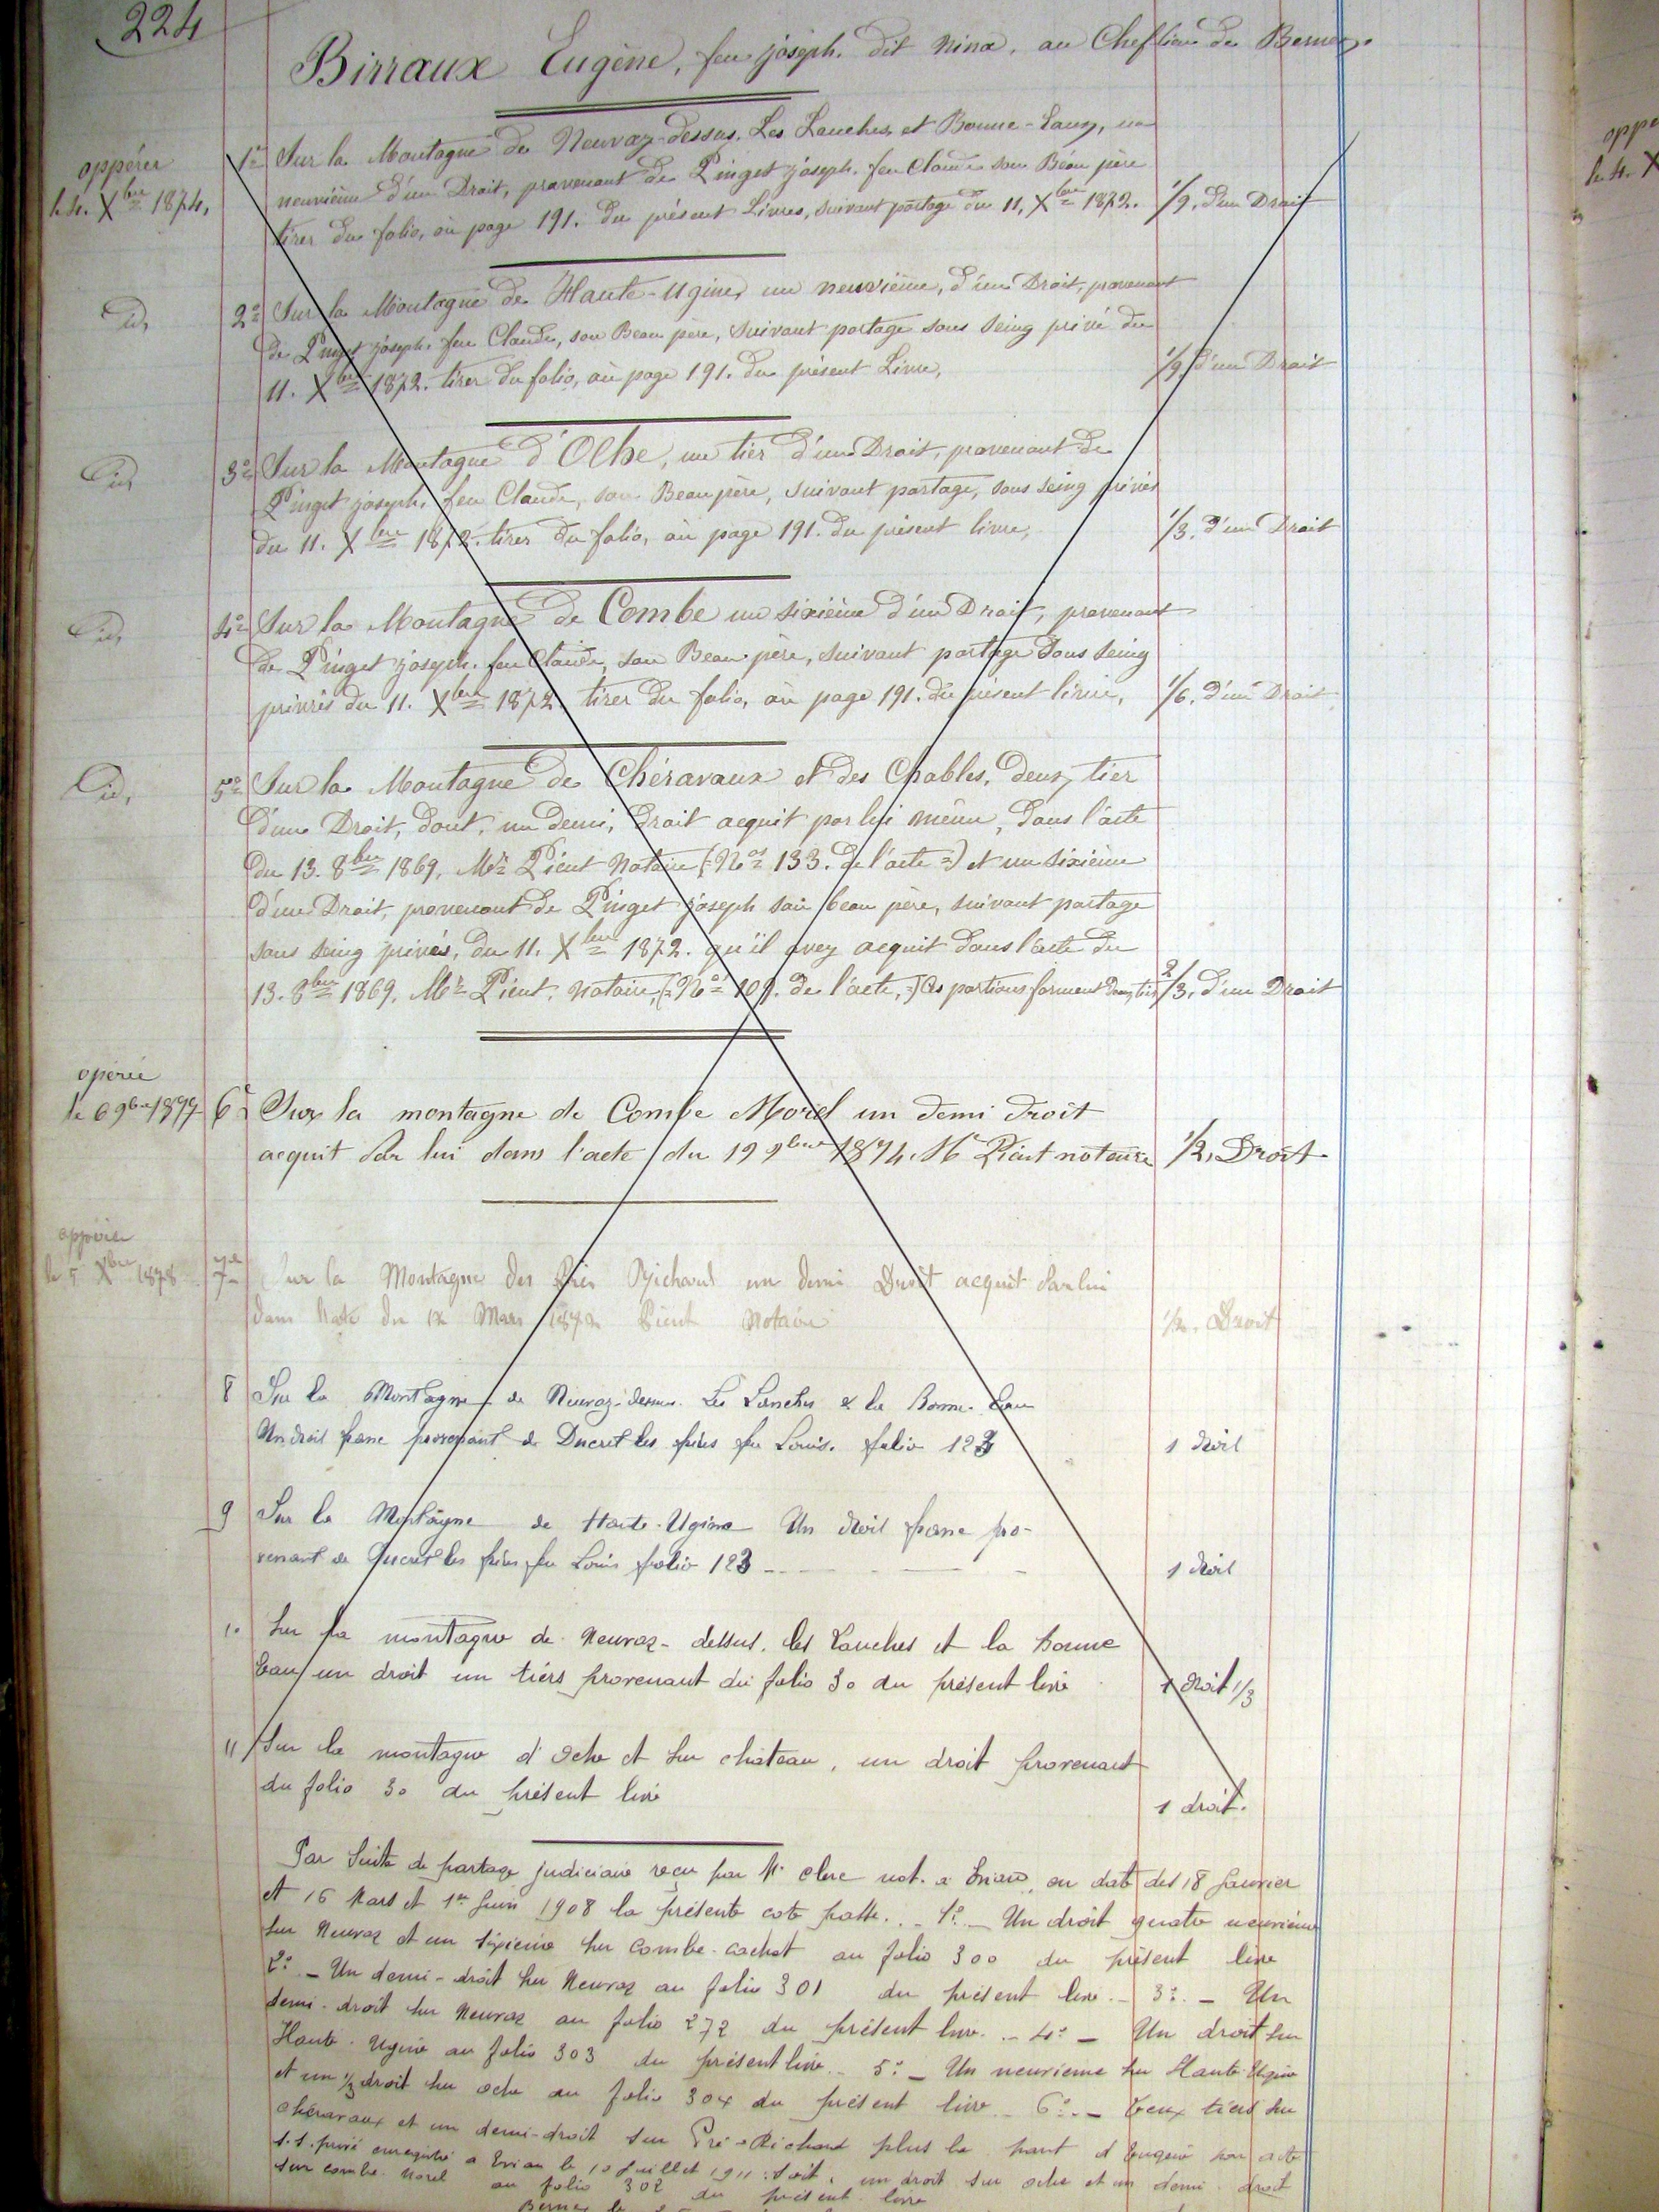 224
Birraux Eugène, feu joseph. dit nina, au Cheflieu de Bernex.
oppérer
le 4. Xbre 1874,
1° Sur la Montagne de Neuvaz-dessus. Les Lanches et Bonne-Eaux, un
neuvième d'un Droit, provenant de Pinget joseph. feu Claude son Beau père
tirer du folio, où page 191. du présent Livres, suivant partage du 11, Xbre 1872. 1/9. d'un Droit
id, 2° Sur la Montagne de Haute-Ugine, un neuvième, d'un Droit, provenant
de Pinget joseph. feu Claude, son Beau père, suivant partage sous seing privé du
11. Xbre 1872. tirer du folio, où page 191. du présent Livre, 1/9 d'un Droit
id, 3° Sur la Montagne d'Oche, un tier d'un Droit, provenant de
Pinget joseph. feu Claude, son Beau père, suivant partage, sous seing privés
du 11. Xbre 1872. tirer du folio, où page 191. du présent livre, 1/3. d'un Droit
id, 4° Sur la Montagne de Combe un sixième d'un Droit, provenant
de Pinget joseph. feu Claude, son Beau père, suivant partage sous seing
privés du 11. Xbre 1872, tirer du folio, où page 191. du présent livre, 1/6. d'un Droit
id, 5° Sur la Montagne de Chéravaux et des Chables, deux tier
d'un Droit, dont, un demi, Droit acquit par lui même, dans l'acte
du 13. 8bre 1869, Mr Pieut Notaire (=No 133. de l'acte =) et un sixième
d'un Droit, provenant de Pinget joseph son beau père, suivant partage
sous seing privés, du 11. Xbre 1872. qu'il avez acquit dans l'acte du
13. 8bre 1869, Mr Pieut, Notaire, (=No 109. de l'acte,=) Ces portions forment deux tier 2/3. d'un Droit
operée
le 6 9bre 1877
6° Sur la montagne de Combe Morel un demi droit
acquit Par lui dans l'acte du 19 9bre 1874. Me Pieut notaire 1/2, Droit
oppérer
le 5 Xbre 1878
7° Sur la Montagne des Prés Richard un demi Droit acquit Par lui
dans l'acte du 12 Mars 1872 Pieut Notaire 1/2. Droit
8 Sur la Montagne de Neuvaz-dessus. Les Lanches & la Bonne-Eau
Un droit franc provenant de Ducret les frères feu Louis. folio 123 1 droit
9 Sur la Montagne de Haute-Ugine Un droit franc pro-
venant de Ducret les frères feu Louis folio 123 - 1 droit
10 Sur la montagne de Neuvaz-dessus, les Lanches et la bonne
Eau, un droit un tiers provenant du folio 30 du présent livre 1 droit 1/3
11 Sur la montagne d'Oche et sur château, un droit provenant
du folio 30 du présent livre 1 droit.
Par suite de partage judiciaire reçu par Me Clerc not. à Evian, en date des 18 Janvier
et 16 Mars et 1er Juin 1908 la présente cote passe. - 1° - Un droit quatre neuvième
sur Neuvaz et un sixième sur Combe-Cachat au folio 300 du présent livre
2° - Un demi-droit sur Neuvaz au folio 301 du présent livre. - 3° - Un
demi-droit sur Neuvaz au folio 272 du présent livre. - 4° - Un droit sur
Haute-Ugine au folio 303 du présent livre - 5° - Un neuvième sur Haute-Ugine
et un 1/3 droit sur oche au folio 304 du présent livre - 6° - Deux tiers sur
chéravaux et un demi-droit sur Pré-Richard plus la part d'Eugène par acte
s.s. privé enregistré à Evian le 10 Juillet 1911 soit, un droit sur oche et un demi droit
sur combe-Morel au folio 302 du présent livre
Bernex le